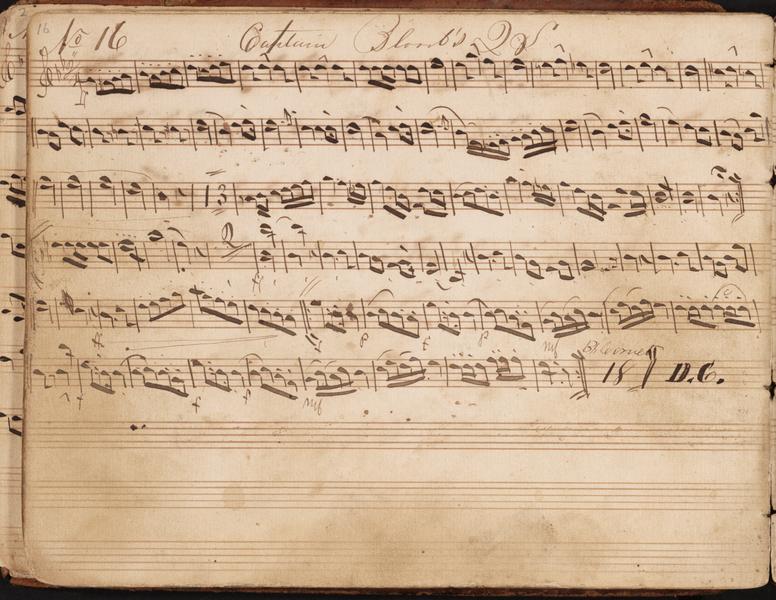 16 No 16 Captain Blood's QS
13
2
f p f p mf
18 D.C.
f f p mf